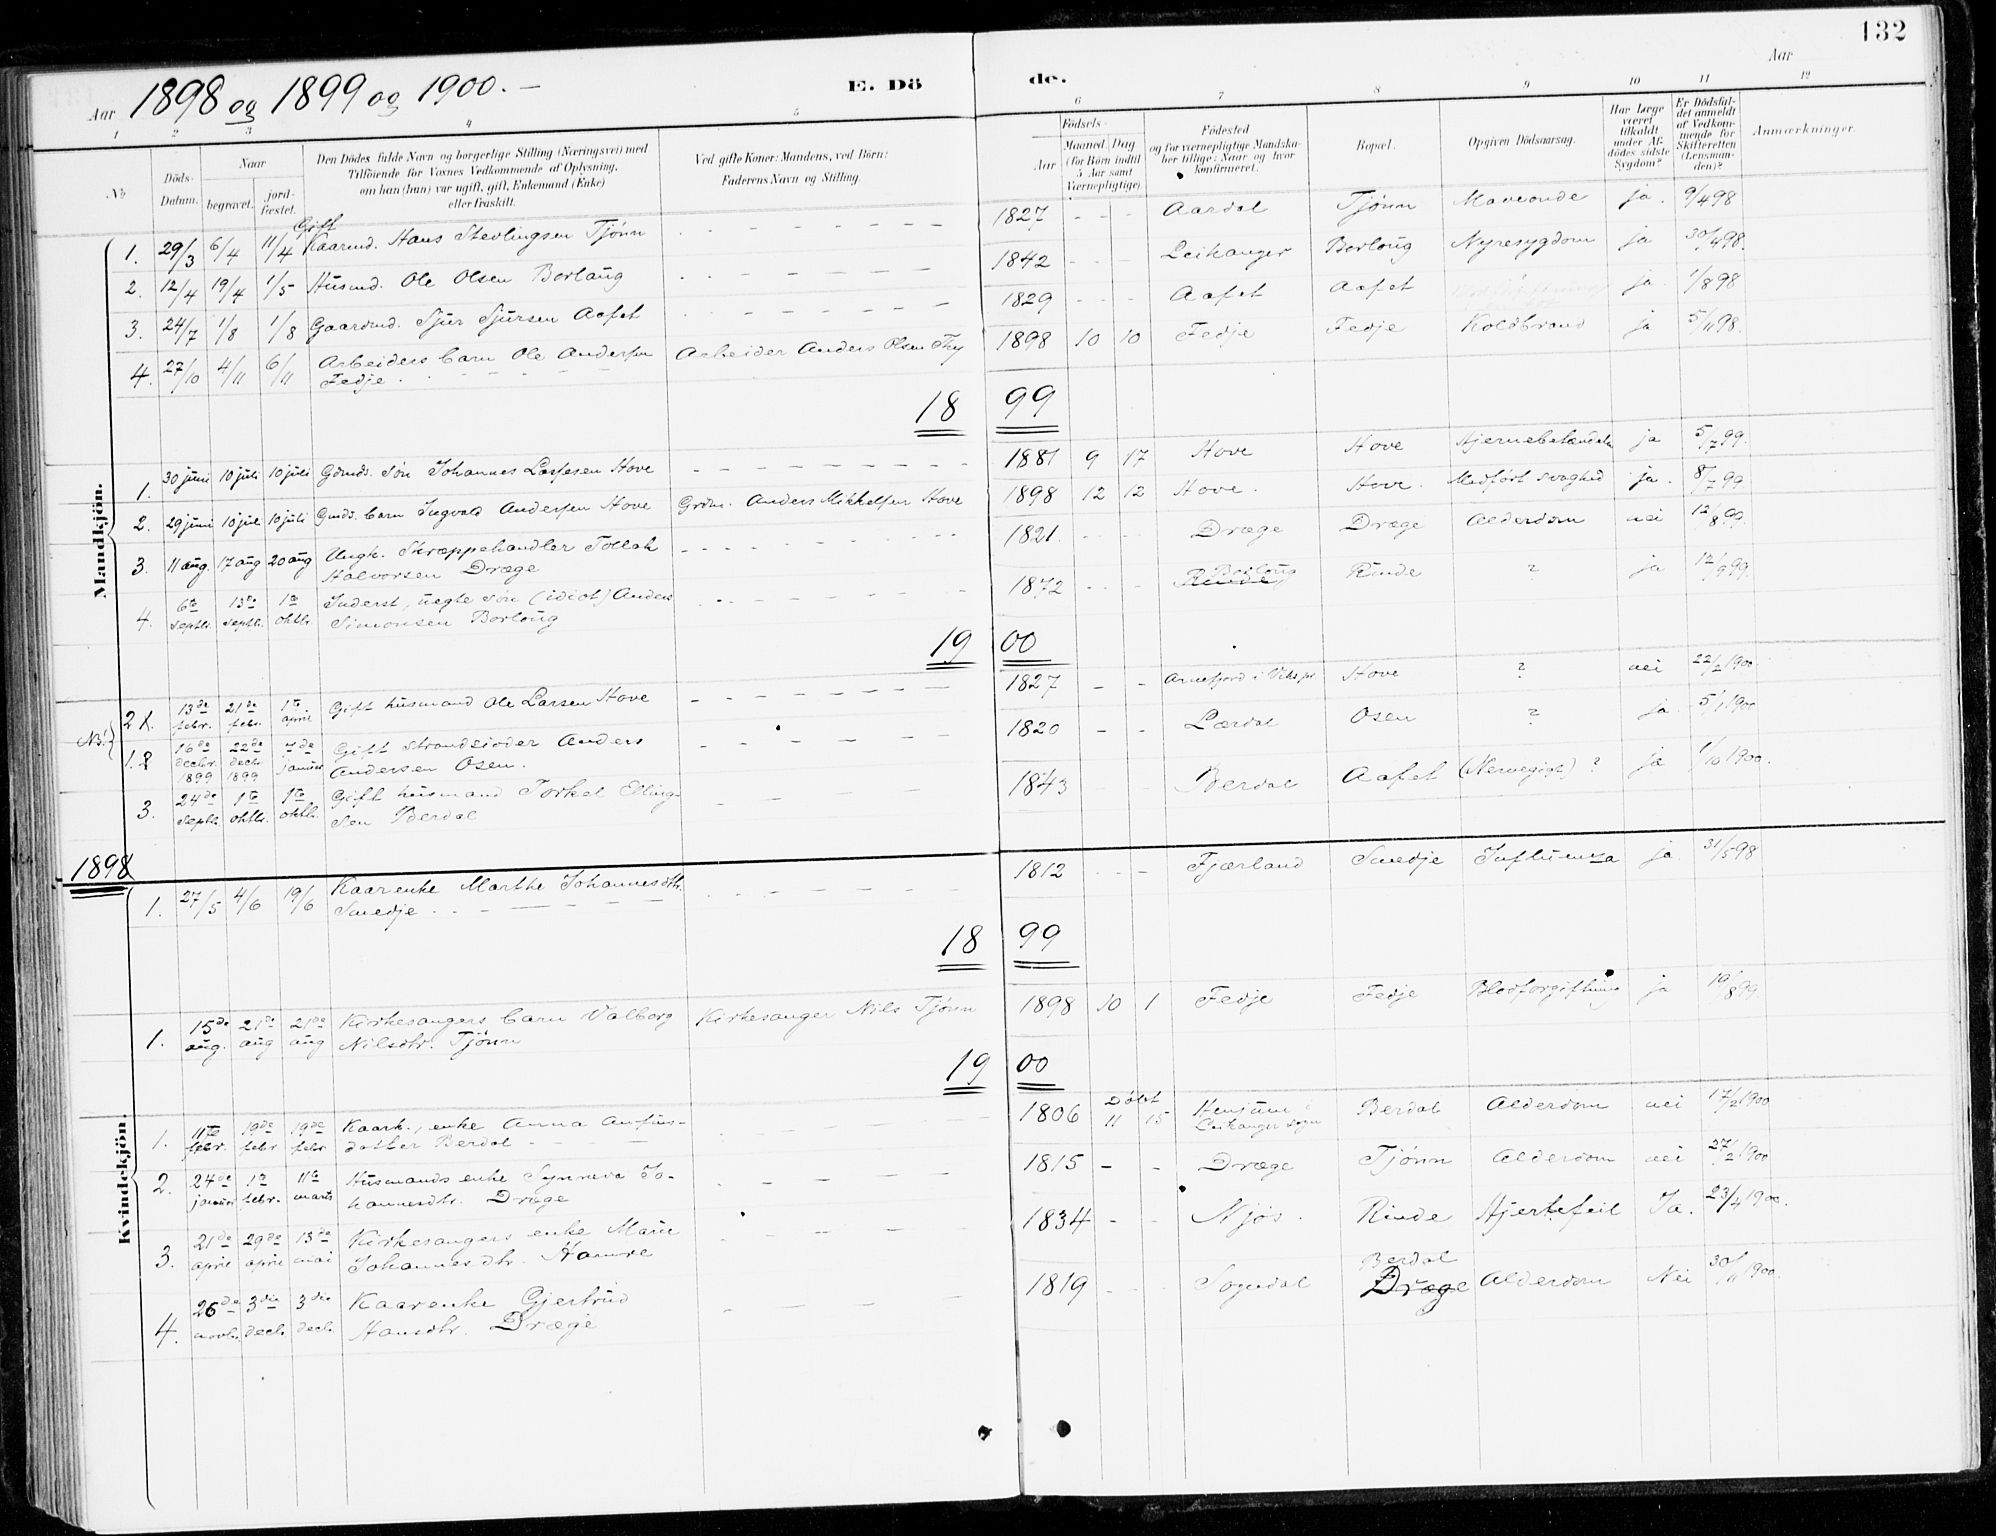 132
Aar 1898 og 1899 og 1900. –
E. Dö
de.
Aar
1 2 3 4 5 6 7 8 9 10 11 12
No
Döds-Datum.
Naar
begravet.
jord-fæstet.
Den Dödes fulde Navn og borgerlige Stilling (Næringsvei) med
Tilföiende for Voxnes Vedkommende af Oplysning,
om han (hun) var ugift, gift, Enkemand (Enke)
eller fraskilt.
Ved gifte Koner: Mandens, ved Börn:
Faderens Navn og Stilling.
Födsels-
Aar
Maaned. Dag
(for Börn indtil
5 Aar samt
Værnepligtige)
Födested
og for værnepligtige Mandska-
ber tillige: Naar og hvor
konfirmeret.
Bopæl.
Opgiven Dödsaarsag.
Har Læge
været
tilkaldt
under Af-
dödes sidste
Sygdom?
Er Dödsfal-
det anmeldt
af Vedkom-
mende for
Skifteretten
(Lensman-
den)?
Anmærkninger.
Mandkjön.
Gift
1. 29/3 6/4 11/4 Kaarmd. Hans Stedlingsen Tjönn - - - 1827 - - - Aardal Tjönn Maveonde ja. 9/4 98
2. 12/4 19/4 1/5 Husmd. Ole Olsen Borlaug - - - 1842 - - - Leikanger Borlaug Nyresygdom ja 30/4 98.
3. 24/7 1/8 1/8 Gaardmd. Sjur Sjursen Aafet - - - 1829 - - - Aafet Aafet ja 1/8 98
4. 27/10 4/11 6/11 Arbeiders barn Ole Andersen Arbeider Anders Olsen Thy 1898 10 10 Fedje Fedje Koldbrand ja 5/11 98.
Fedje.
18 99
1. 30 juni 10 juli 10 juli Grdmds. sön Johannes Lassesen Hove - - - 1881 9 17 Hove Hove Hjernebetændelse ja 5/7 99.
2. 29 juni 10 juli 10 juli Gmds. barn Ingvald Andersen Hove Grdm. Anders Mikkelsen Hove 1898 12 12 Hove. Hove. Medfört svaghed ja. 8/7 99
3. 11 aug. 17 aug 20 aug Ungk. Skræppehandler Tollak - - - 1821. Dræge Dræge Alderdom nei 12/8 99.
Halvorsen Dræge
4. 6te septb. 13de septb. 1te oktb. Inderst, uegte sön (idiot) Anders - - - 1872 - - - Rinde Borlaug Rinde ? ja 12/9 99.
Simonsen Borlaug
19 00
NB!
2 1. 13de febr. 21de febr. 1te april Gift husmand Ole Larsen Hove - - - 1827 - - Arnefjord i Viks pr. Hove ? nei 22/2 1900
1. 2 16de decbr. 1899 22de decb. 1899 7de januar Gift strandsidder Anders - - - 1820 - - Lærdal Osen ? ja. 5/1 1900
Andersen Osen.
3. 24de septb. 1te oktb. 1te oktb. Gift husmand Torkel Elling- - - - 1843 Berdal Aafet (Nervegigt) ? ja 1/10 1900.
sen Berdal
1898
Kvindekjön.
1. 27/5 4/6 19/6 Kaarenke Marthe Johannesdtr. - - - 1812 - - - Fjærland Smedje Influenza ja 31/5 98
Smedje
18 99
1. 15de aug. 21de aug 21de aug Kirkesangers barn Valborg Kirkesanger Nils Tjönn 1898 10 1 Fedje Fedje Blodforgiftning ja 19/8 99
Nilsdtr. Tjönn
19 00
1. 11te febr. 19de febr 19de febr Kaark., enke Anna Anfins- - - - 1806 Döbt 11 15 Henjum i Leikanger sogn Berdal Alderdom nei 17/2 1900
datter Berdal
2. 24de januar 1te febr. 11te marts Husmands enke Synneva Jo- - - - 1815 - - Dræge Tjönn Alderdom nei 27/2 1900
hannesdtr. Dræge
3. 21de april 29de april 13de mai Kirkesangers enke Marie - - - 1834 - - Njøs. Rinde Hjertefeil Ja. 23/4 1900.
Johannesdtr. Hamre
4. 26de novbr. 3die decb. 3die decb. Kaarenke Gjertrud - - - 1819 - - - Sogndal Berdal Dræge Alderdom Nei 30/11 1900.
Hansdtr. Dræge